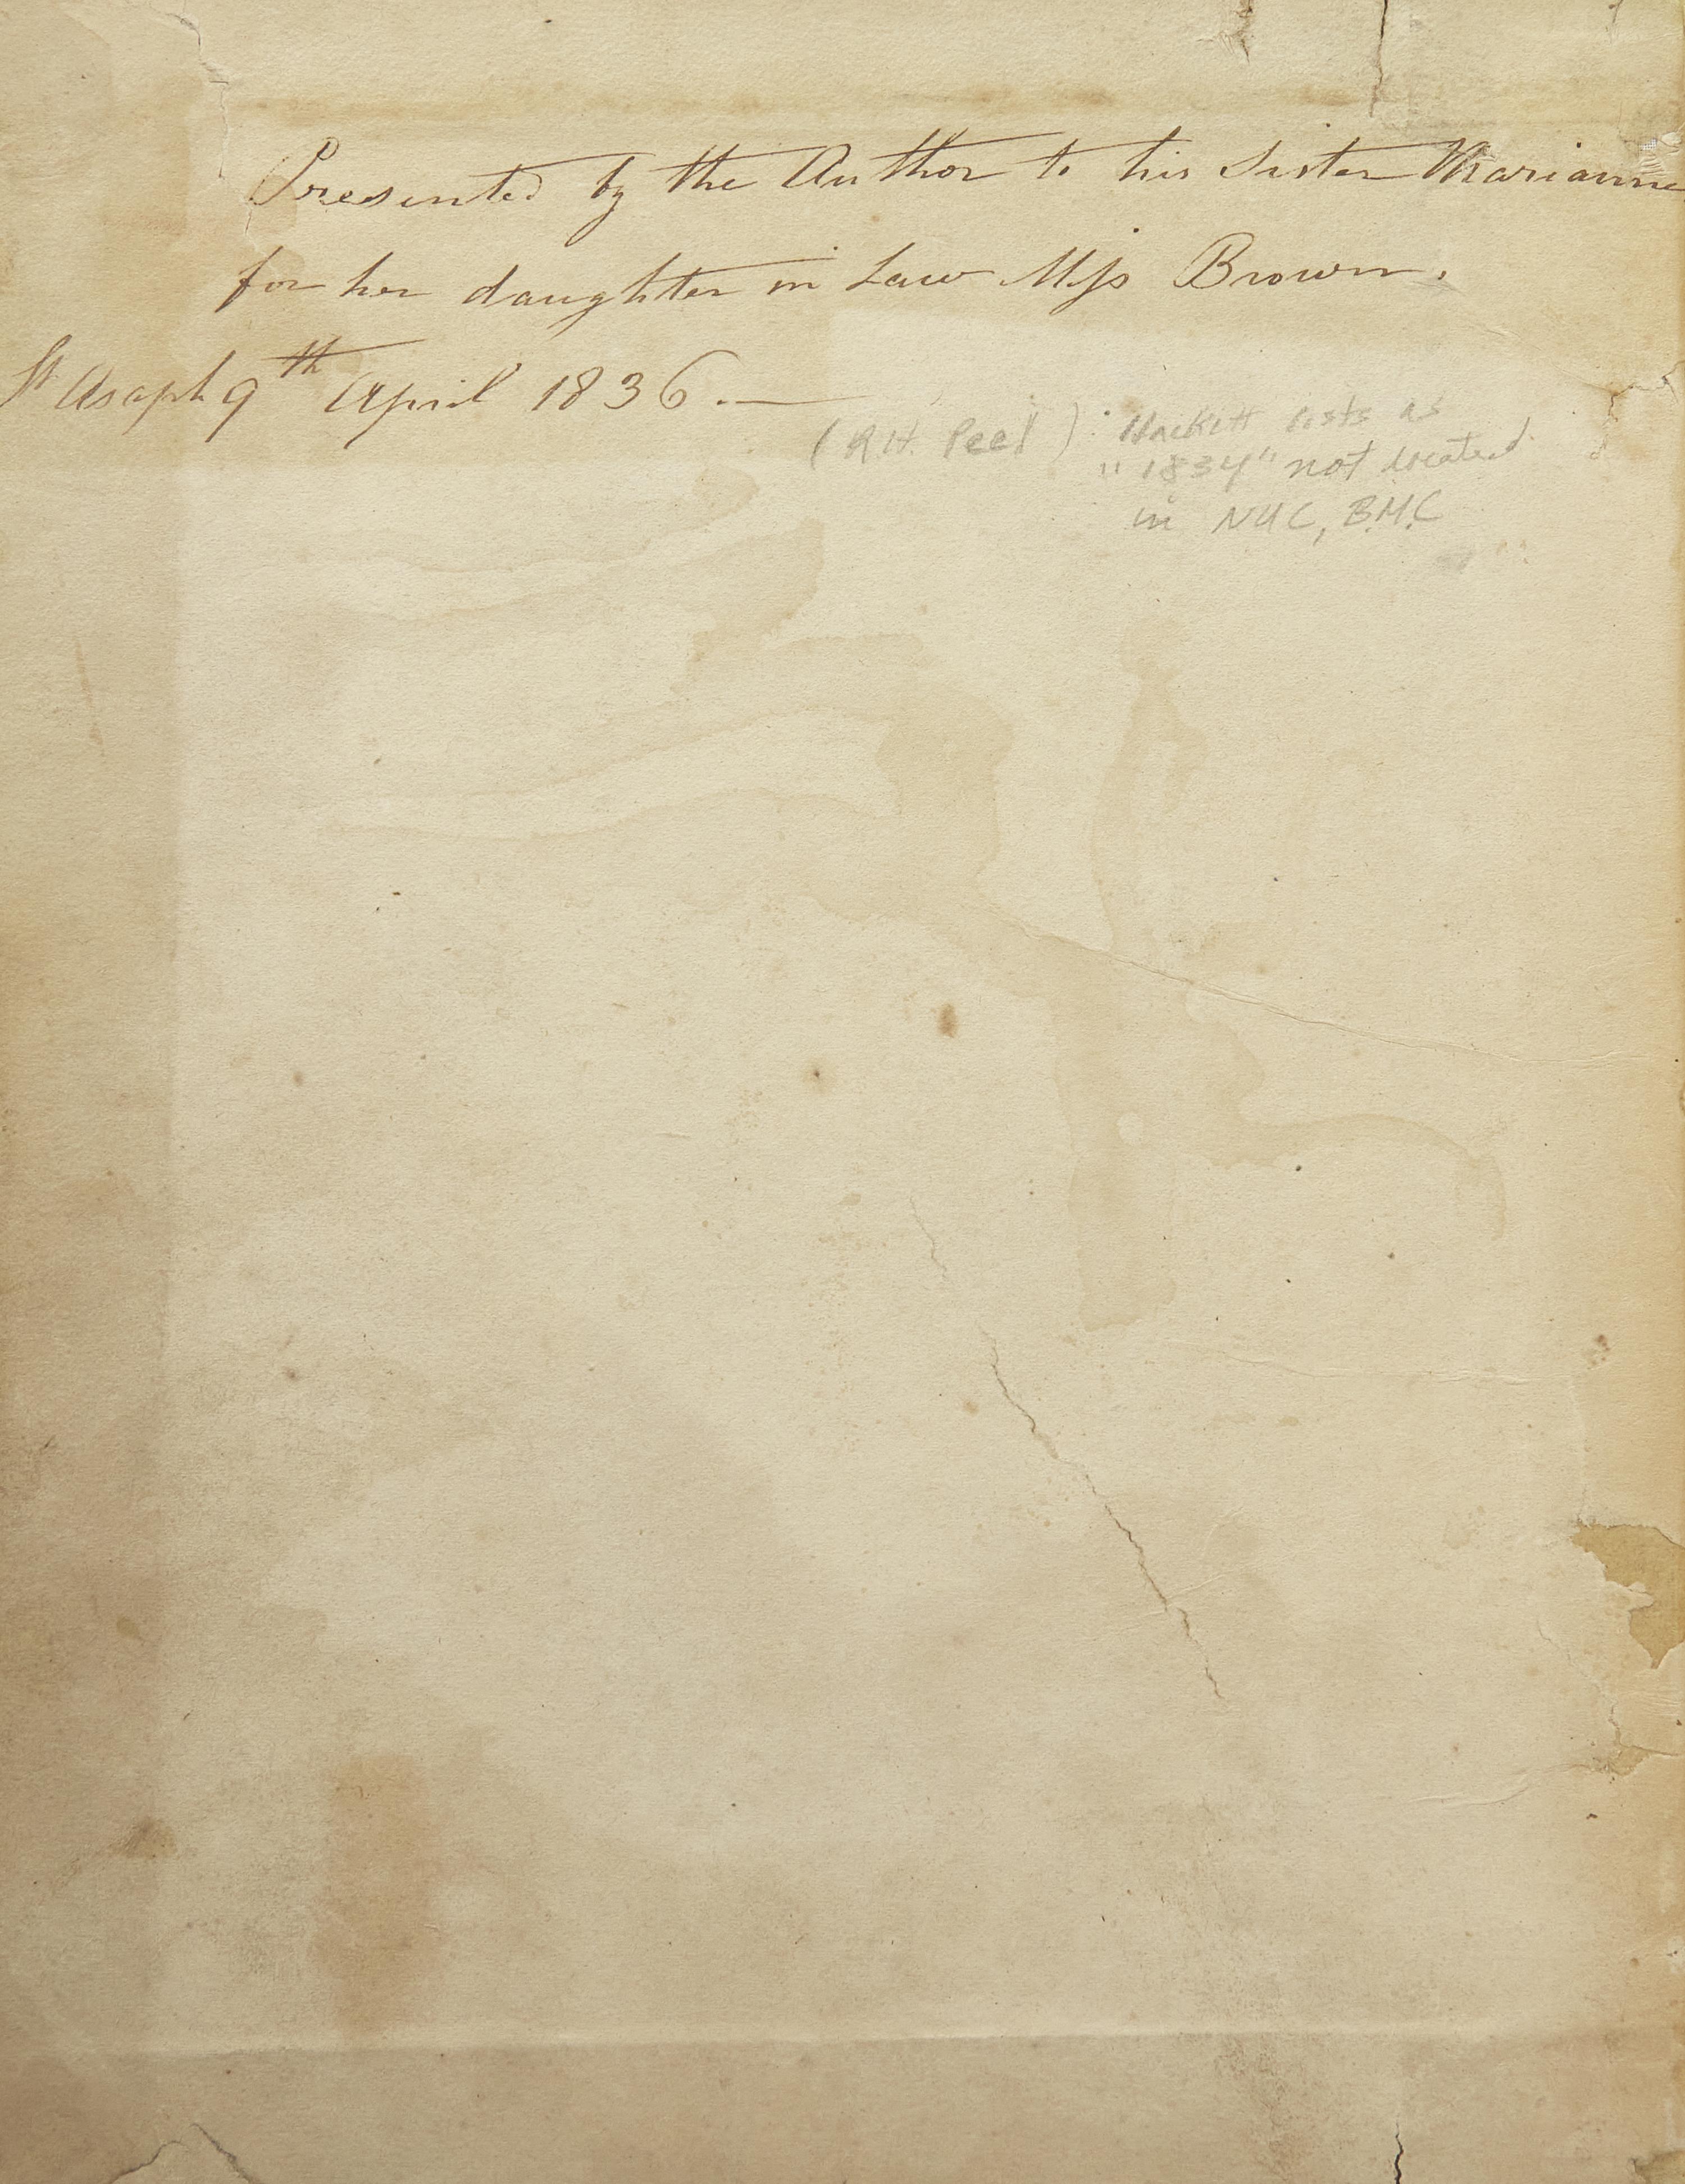 Presented by the Author to his Sister Marianne
for her daughter in Law Miss Brown.
St Asaph 9th April 1836. —
(R.H. Peel) : Hackett lists as
"1834" not located
in NUC, B.M.C